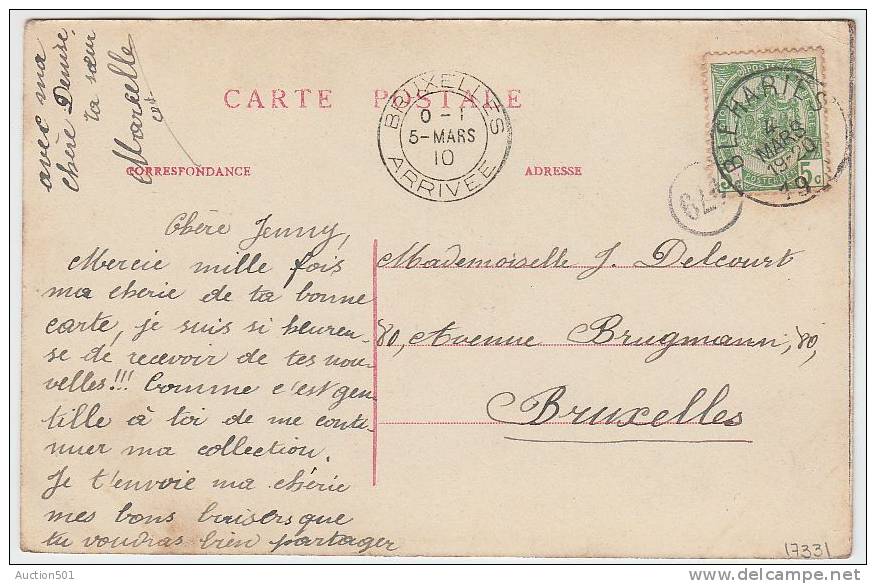 CARTE POSTALE
CORRESPONDANCE
ADRESSE
BRUXELLES
0-1
5-MARS
10
ARRIVEE
BLEHARIES
4
MARS
19-20
19
5c
Chère Jenny,
Mercie mille fois
ma cherie de ta bonne
carte, je suis si heureu-
se de recevoir de tes nou-
velles!!! Comme c'est gen-
tille à toi de me conti-
nuer ma collection.
Je t'envoie ma chérie
mes bons baisers que
tu voudras bien partager
avec ma
chère Denise,
ta sœur
Marcelle
Mademoiselle J. Delcourt
80, Avenue Brugmann, 80,
Bruxelles
17331
Auction501
delcampe.net